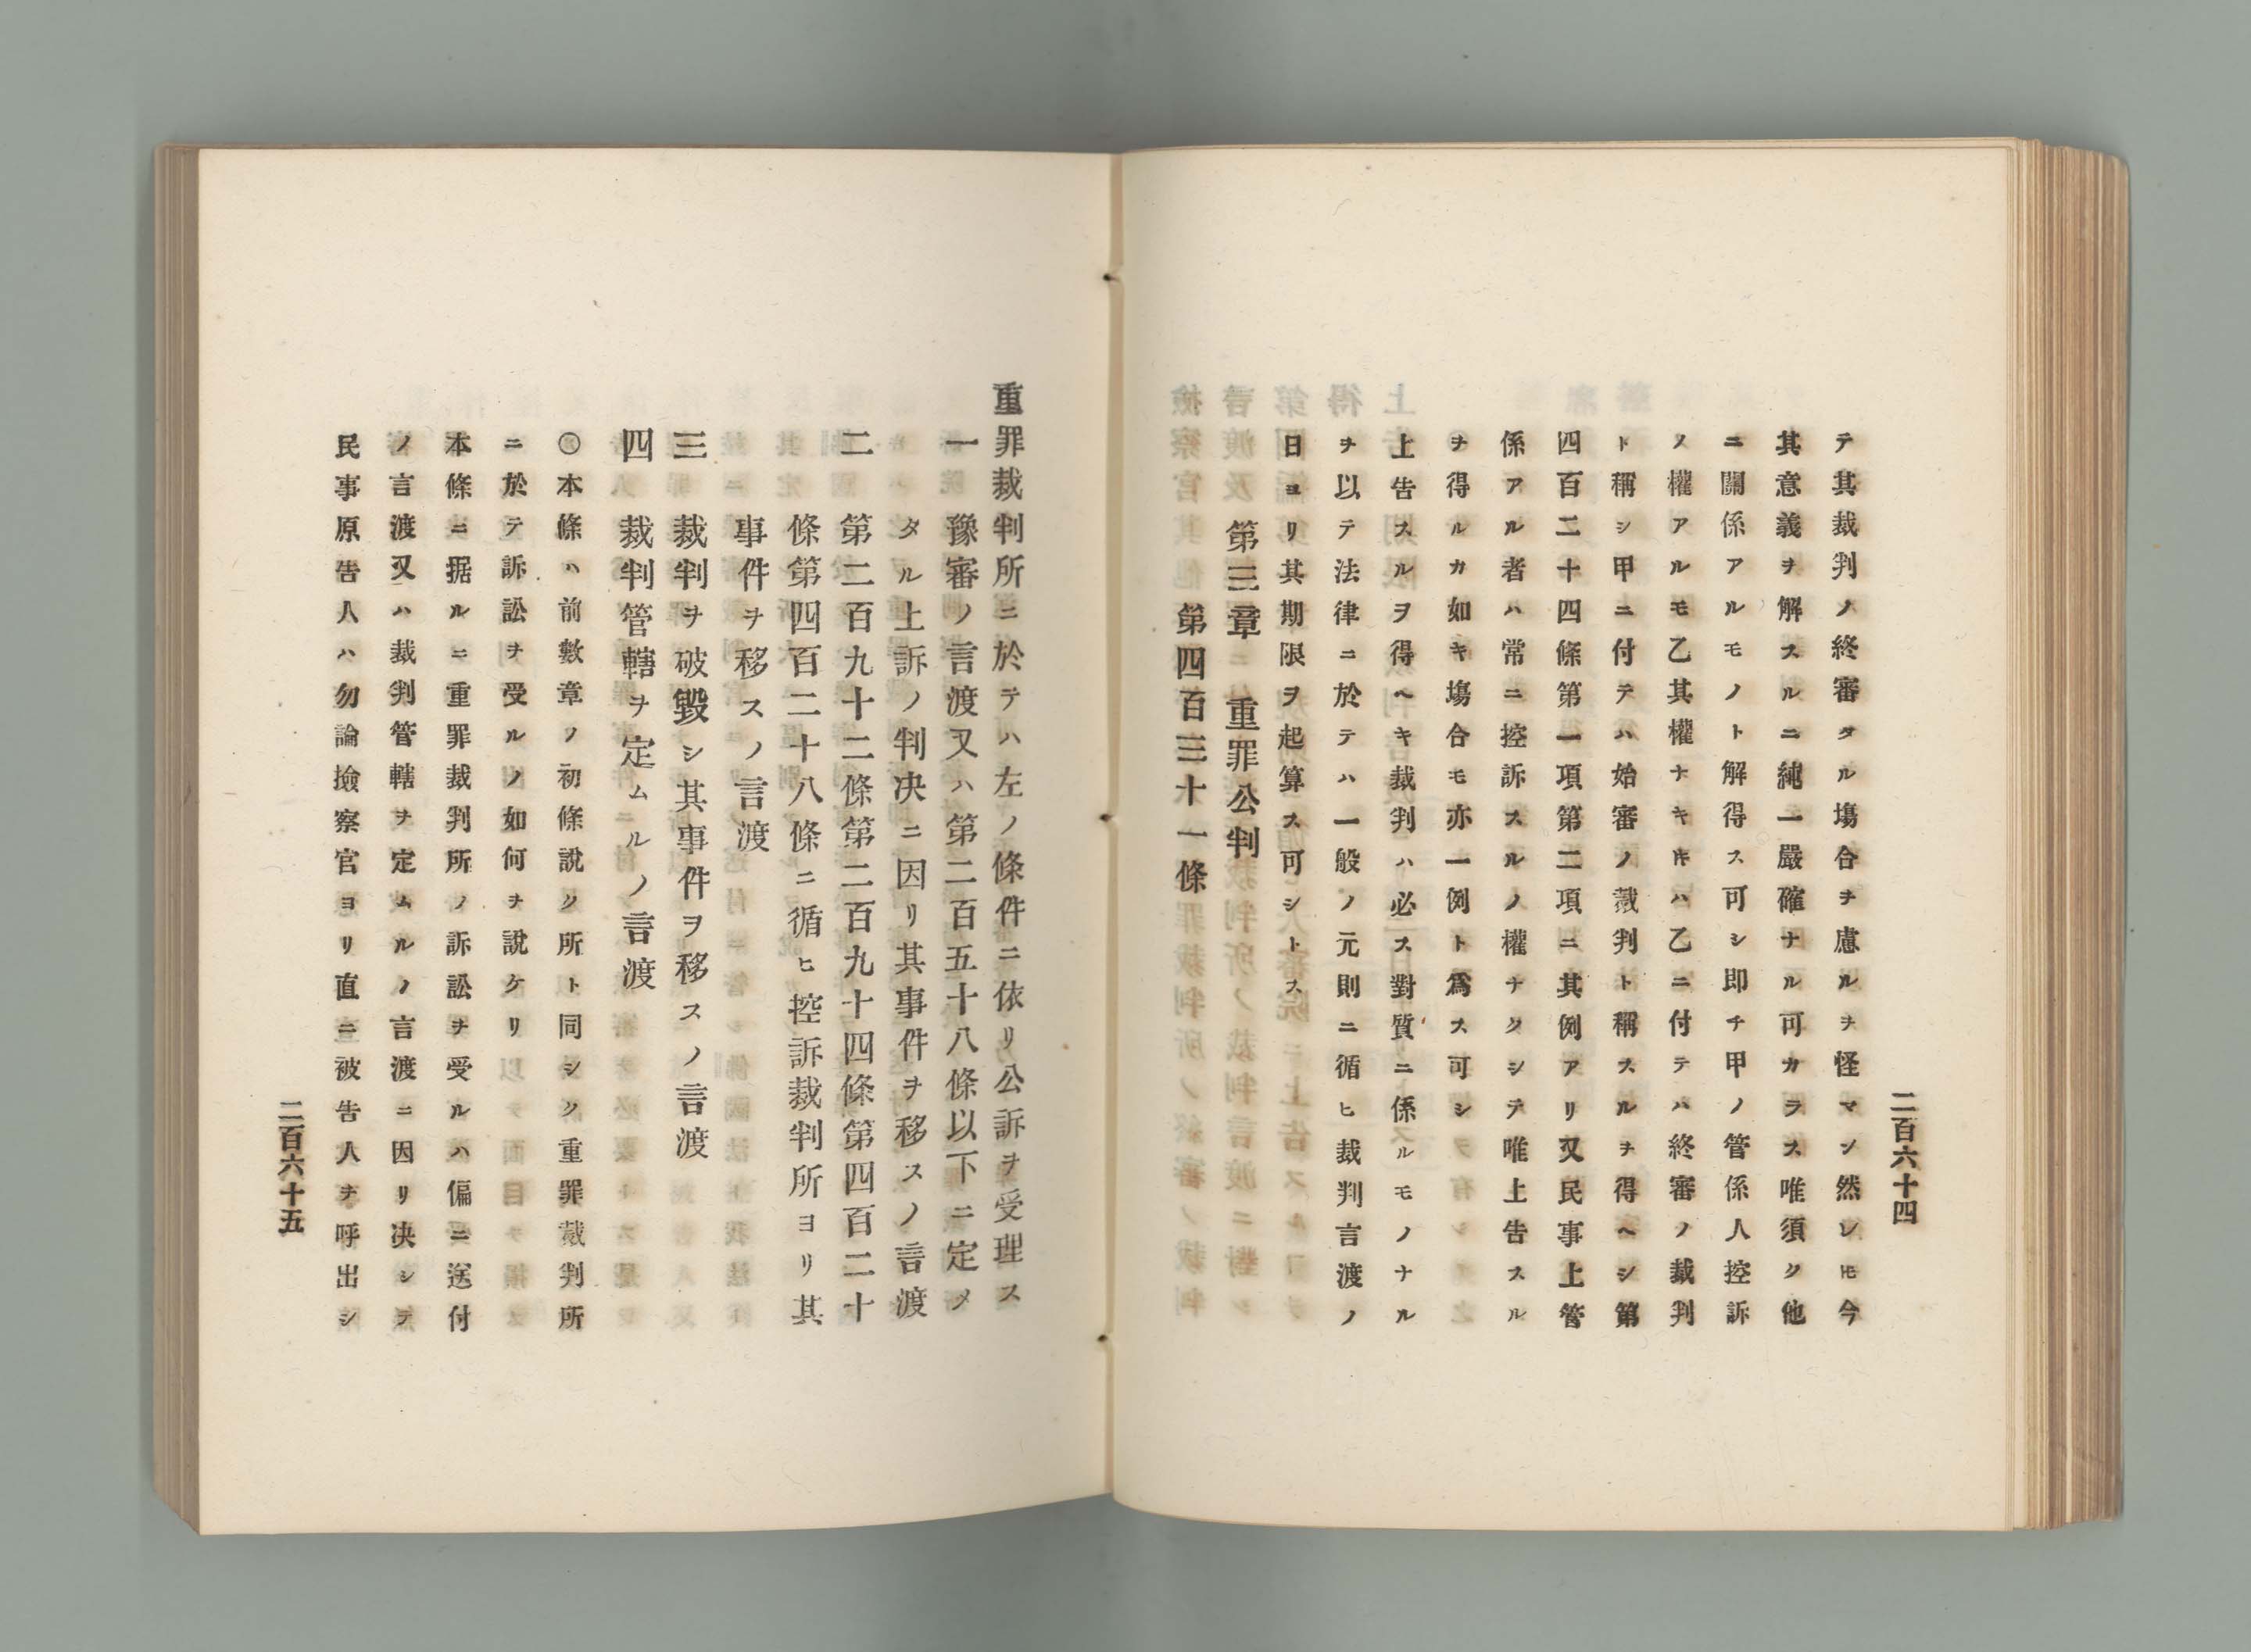 二百六十四
テ其裁判ノ終審タル塲合ヲ慮ルヲ怪マン然レ𪜈今
其意義ヲ解スルニ純一嚴確ナル可カラス唯須ク他
ニ關係アルモノト解得ス可シ即チ甲ノ管係人控訴
ノ權アルモ乙其權ナキ𪜈ハ乙ニ付テハ終審ノ裁判
ト稱シ甲ニ付テハ始審ノ裁判ト稱スルヲ得ヘシ第
四百二十四條第一項第二項ニ其例アリ又民事上管
係アル者ハ常ニ控訴スルノ權ナクシテ唯上告スル
ヲ得ルカ如キ塲合モ亦一例ト爲ス可シ
上告スルヲ得ヘキ裁判ハ必ス對質ニ係ルモノナル
ヲ以テ法律ニ於テハ一般ノ元則ニ循ヒ裁判言渡ノ
日ヨリ其期限ヲ起算ス可シトス
第三章 重罪公判
第四百三十一條
重罪裁判所ニ於テハ左ノ條件ニ依リ公訴ヲ受理ス
一 豫審ノ言渡又ハ第二百五十八條以下ニ定メ
タル上訴ノ判决ニ因リ其事件ヲ移スノ言渡
二 第二百九十二條第二百九十四條第四百二十
條第四百二十八條ニ循ヒ控訴裁判所ヨリ其
事件ヲ移スノ言渡
三 裁判ヲ破毀シ其事件ヲ移スノ言渡
四 裁判管轄ヲ定ムルノ言渡
○本條ハ前數章ノ初條說ク所ト同シク重罪裁判所
ニ於テ訴訟ヲ受ルノ如何ヲ說ケリ
本條ニ据ルニ重罪裁判所ノ訴訟ヲ受ルハ偏ニ送付
ノ言渡又ハ裁判管轄ヲ定ムルノ言渡ニ因リ决シテ
民事原告人ハ勿論撿察官ヨリ直ニ被告人ヲ呼出シ
二百六十五